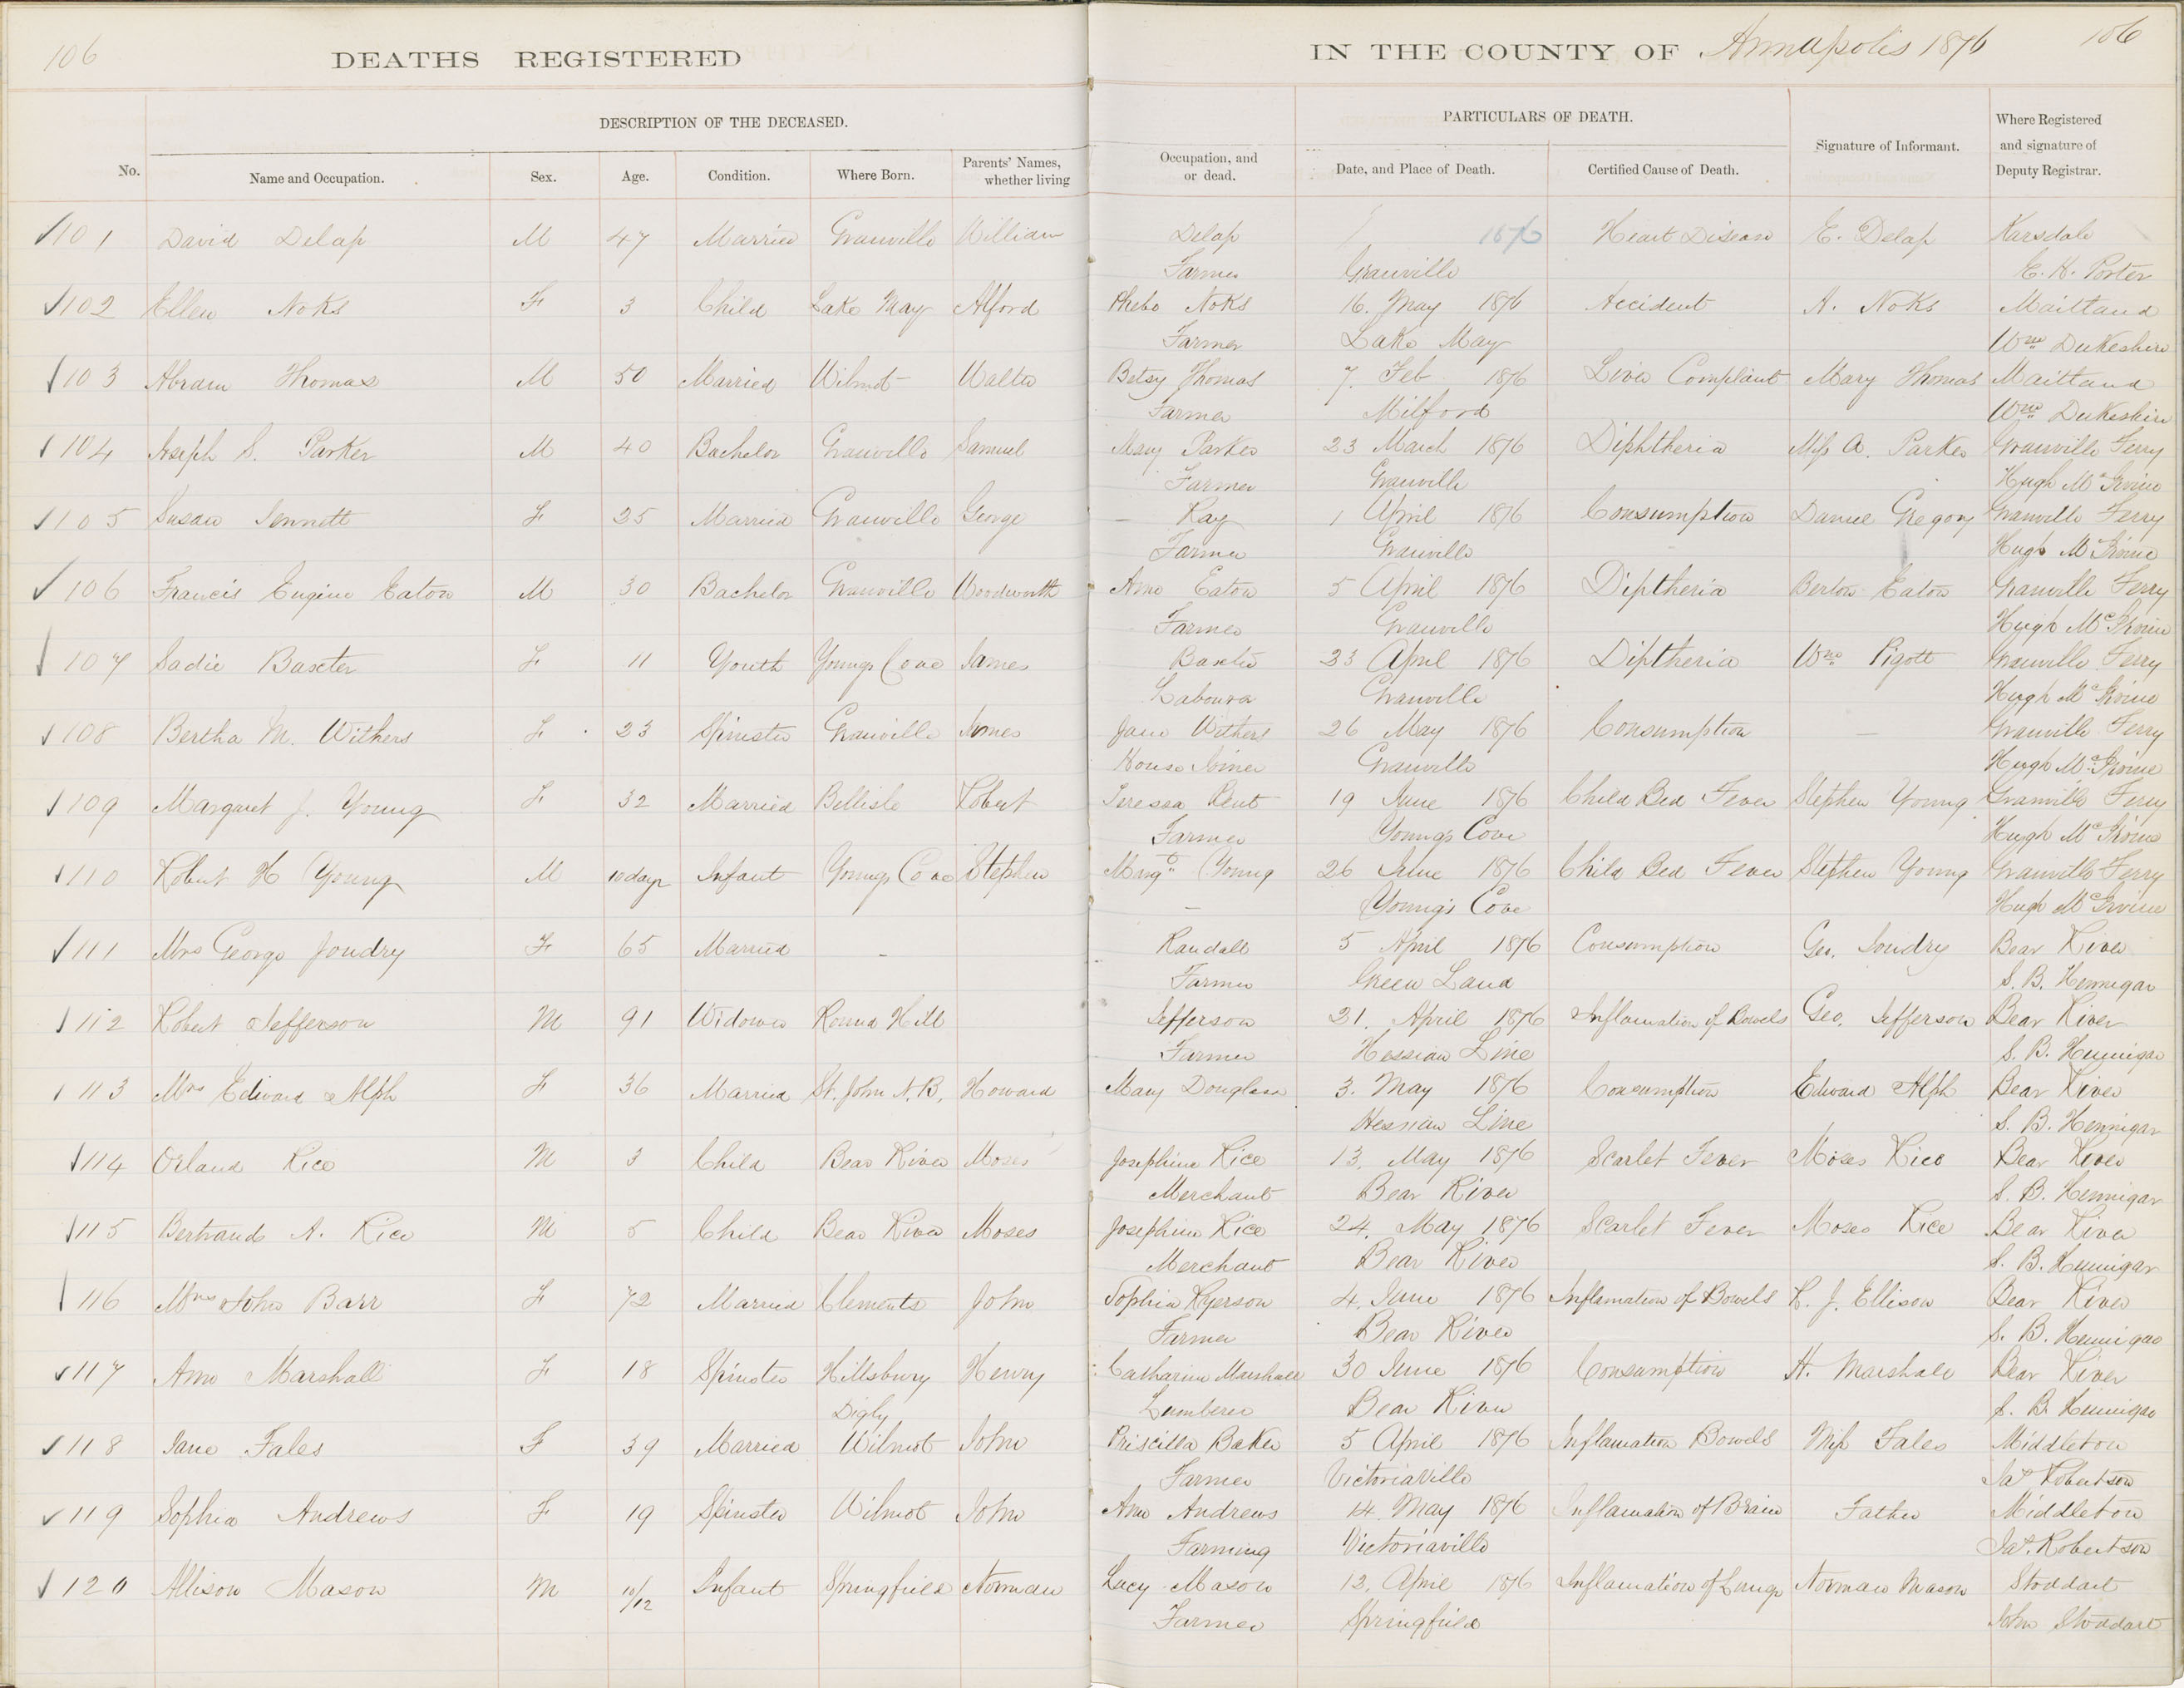 106
DEATHS REGISTERED
IN THE COUNTY OF Annapolis 1876
106
DESCRIPTION OF THE DECEASED.
PARTICULARS OF DEATH.
No.
Name and Occupation.
Sex.
Age.
Condition.
Where Born.
Parents' Names, whether living
Occupation, and or dead.
Date, and Place of Death.
Certified Cause of Death.
Signature of Informant.
Where Registered and signature of Deputy Registrar.
101 David Delap M 47 Married Granville William Delap 1876 Heart Disease E. Delap Karsdale
Farmer Granville E. H. Porter
102 Ellen Noks F 3 Child Lake May Alford Phebe Noks 16. May 1876 Accident A. Noks Maitland
Farmer Lake May Wm Dukeshire
103 Abram Thomas M 50 Married Wilmot Walter Betsy Thomas 7. Feb 1876 Liver Complaint Mary Thomas Maitland
Farmer Milford Wm Dukeshire
104 Joseph S. Parker M 40 Bachelor Granville Samuel Mary Parker 23 March 1876 Diphtheria Miss A. Parker Granville Ferry
Farmer Granville Hugh McIrvine
105 Susan Sennett F 25 Married Granville George Ray 1 April 1876 Consumption Daniel Gregory Granville Ferry
Farmer Granville Hugh McIrvine
106 Francis Eugine Eaton M 30 Bachelor Granville Woodworth Ann Eaton 5 April 1876 Diptheria Berton Eaton Granville Ferry
Farmer Granville Hugh McIrvine
107 Sadie Baxter F 11 Youth Youngs Cove James Baxter 23 April 1876 Diptheria Wm Pigott Granville Ferry
Labourer Granville Hugh McIrvine
108 Bertha M. Withers F 23 Spinster Granville James Jane Withers 26 May 1876 Consumption — Granville Ferry
House Joiner Granville Hugh McIrvine
109 Margaret J. Young F 32 Married Bellisle Robert Teressa Bent 19 June 1876 Child Bed Fever Stephen Young Granville Ferry
Farmer Youngs Cove Hugh McIrvine
110 Robert H Young M 10 days Infant Youngs Cove Stephen Margt Young 26 June 1876 Child Bed Fever Stephen Young Granville Ferry
— Young's Cove Hugh McIrvine
111 Mrs George Joudry F 65 Married - Randall 5 April 1876 Consumption Geo. Joudry Bear River
Farmer Green Land S. B. Hennigar
112 Robert Jefferson M 91 Widower Round Hill Jefferson 21. April 1876 Inflamation of Bowels Geo. Jefferson Bear River
Farmer Hessian Line S. B. Hennigar
113 Mrs Edward Alph F 36 Married St. John N.B. Howard Mary Douglass 3. May 1876 Consumption Edward Alph Bear River
Hessian Line S. B. Hennigar
114 Orland Rice M 3 Child Bear River Moses Josephine Rice 13. May 1876 Scarlet Fever Moses Rice Bear River
Merchant Bear River S. B. Hennigar
115 Bertrand A. Rice M 5 Child Bear River Moses Josephine Rice 24. May 1876 Scarlet Fever Moses Rice Bear River
Merchant Bear River S. B. Hennigar
116 Mrs John Barr F 72 Married Clements John Sophia Ryerson 4. June 1876 Inflamation of Bowels R. J. Ellison Bear River
Farmer Bear River S. B. Hennigar
117 Ann Marshall F 18 Spinster Hillsbury Henry Catharine Marshall 30 June 1876 Consumption H. Marshall Bear River
Digby Lumberer Bear River S. B. Hennigar
118 Jane Fales F 39 Married Wilmot John Priscilla Baker 5 April 1876 Inflamation Bowels Miss Fales Middleton
Farmer Victoriaville Jas Robertson
119 Sophia Andrews F 19 Spinster Wilmot John Ann Andrews 14. May 1876 Inflamation of Brain Father Middleton
Farming Victoriaville Jas. Robertson
120 Allison Mason M 10/12 Infant Springfield Norman Lucy Mason 12. April 1876 Inflamation of Lungs Norman Mason Stoddart
Farmer Springfield John Stoddart